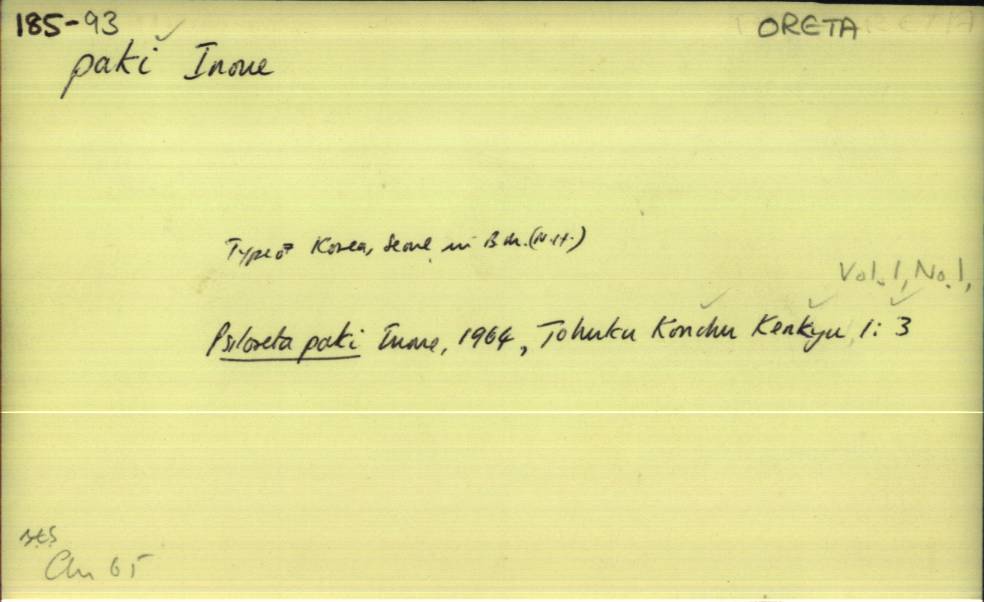 185-93
ORETA
paki Inoue
Type ♂ Korea, Seoul, in B.M.(N.H.)
Vol. 1, No. 1,
Psiloreta paki Inoue, 1964, Tohuku Konchu Kenkyu, 1: 3